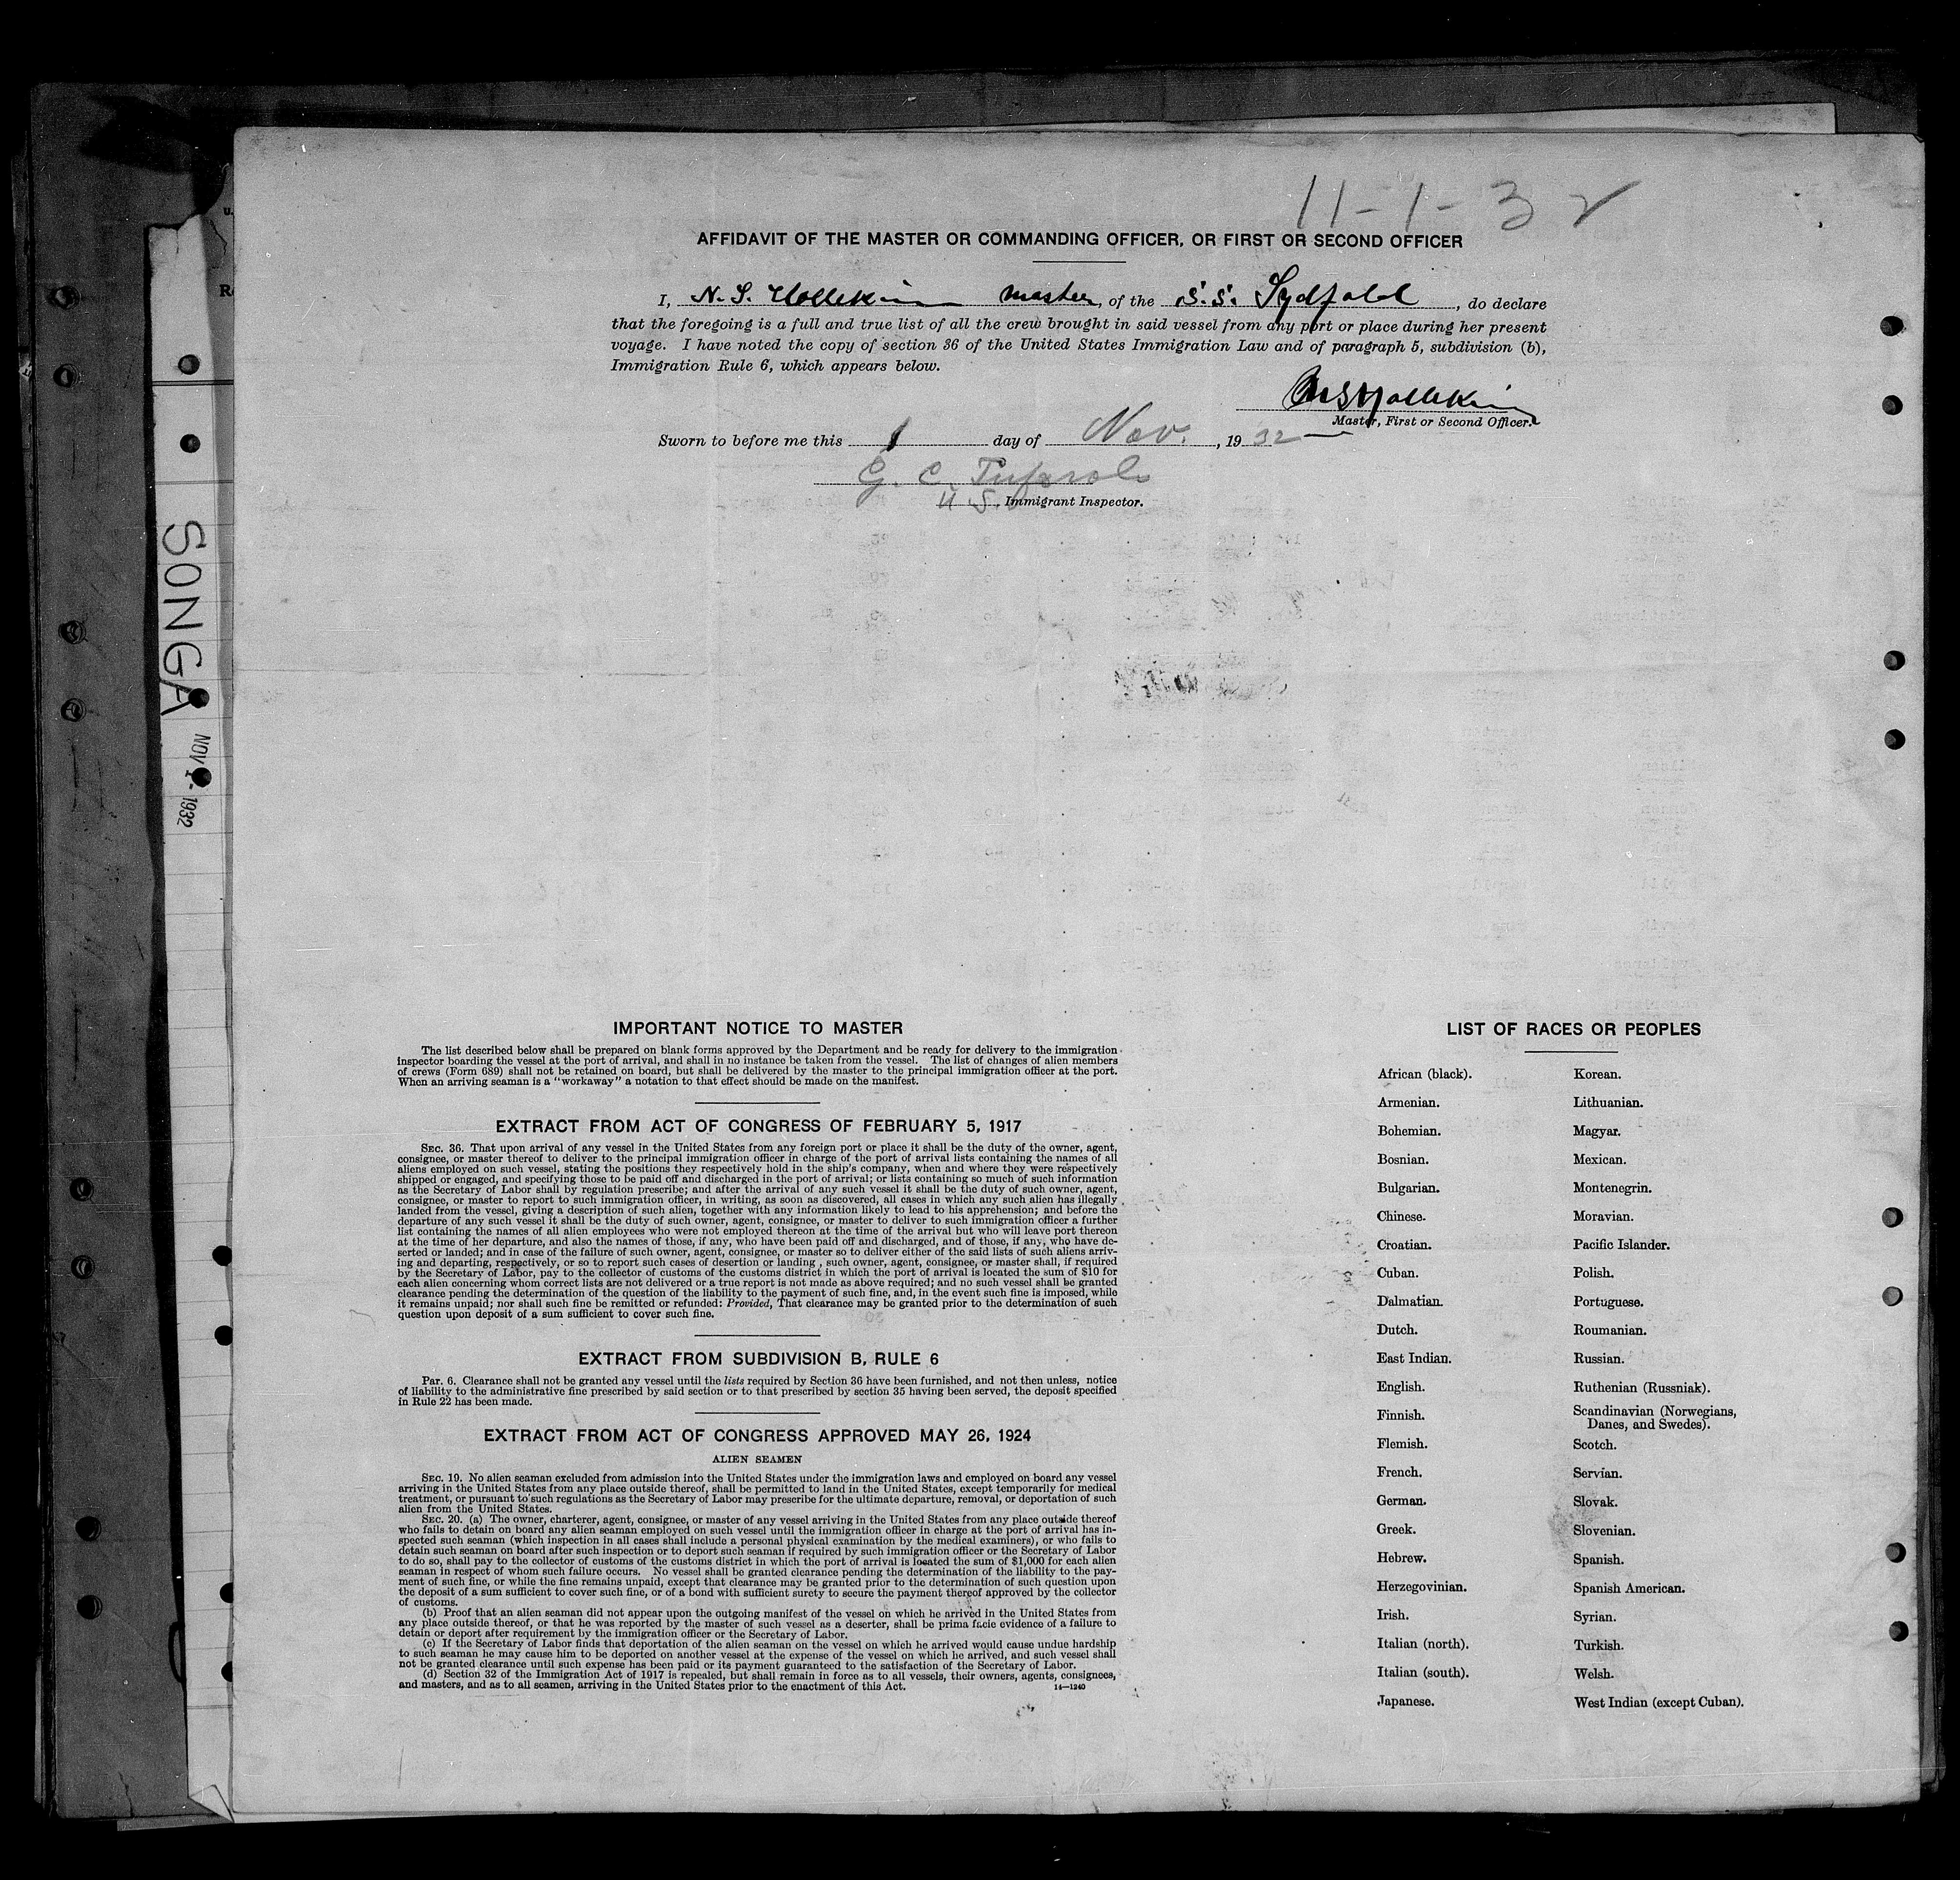 11-1-32
AFFIDAVIT OF THE MASTER OR COMMANDING OFFICER, OR FIRST OR SECOND OFFICER
I, N. S. master, of the S.S. Sydfold, do declare
that the foregoing is a full and true list of all the crew brought in said vessel from any port or place during her present
voyage. I have noted the copy of section 36 of the United States Immigration Law and of paragraph 5, subdivision (b),
Immigration Rule 6, which appears below.
Master, First or Second Officer.
Sworn to before me this 1 day of Nov., 1932
G. C.
U.S. Immigrant Inspector.
SONGA
NOV 1- 1932
IMPORTANT NOTICE TO MASTER
The list described below shall be prepared on blank forms approved by the Department and be ready for delivery to the immigration
inspector boarding the vessel at the port of arrival, and shall in no instance be taken from the vessel. The list of changes of alien members
of crews (Form 689) shall not be retained on board, but shall be delivered by the master to the principal immigration officer at the port.
When an arriving seaman is a "workaway" a notation to that effect should be made on the manifest.
EXTRACT FROM ACT OF CONGRESS OF FEBRUARY 5, 1917
SEC. 36. That upon arrival of any vessel in the United States from any foreign port or place it shall be the duty of the owner, agent,
consignee, or master thereof to deliver to the principal immigration officer in charge of the port of arrival lists containing the names of all
aliens employed on such vessel, stating the positions they respectively hold in the ship's company, when and where they were respectively
shipped or engaged, and specifying those to be paid off and discharged in the port of arrival; or lists containing so much of such information
as the Secretary of Labor shall by regulation prescribe; and after the arrival of any such vessel it shall be the duty of such owner, agent,
consignee, or master to report to such immigration officer, in writing, as soon as discovered, all cases in which any such alien has illegally
landed from the vessel, giving a description of such alien, together with any information likely to lead to his apprehension; and before the
departure of any such vessel it shall be the duty of such owner, agent, consignee, or master to deliver to such immigration officer a further
list containing the names of all alien employees who were not employed thereon at the time of the arrival but who will leave port thereon
at the time of her departure, and also the names of those, if any, who have been paid off and discharged, and of those, if any, who have de-
serted or landed; and in case of the failure of such owner, agent, consignee, or master so to deliver either of the said lists of such aliens arriv-
ing and departing, respectively, or so to report such cases of desertion or landing , such owner, agent, consignee, or master shall, if required
by the Secretary of Labor, pay to the collector of customs of the customs district in which the port of arrival is located the sum of $10 for
each alien concerning whom correct lists are not delivered or a true report is not made as above required; and no such vessel shall be granted
clearance pending the determination of the question of the liability to the payment of such fine, and, in the event such fine is imposed, while
it remains unpaid; nor shall such fine be remitted or refunded: Provided, That clearance may be granted prior to the determination of such
question upon deposit of a sum sufficient to cover such fine.
EXTRACT FROM SUBDIVISION B, RULE 6
Par. 6. Clearance shall not be granted any vessel until the lists required by Section 36 have been furnished, and not then unless, notice
of liability to the administrative fine prescribed by said section or to that prescribed by section 35 having been served, the deposit specified
in Rule 22 has been made.
EXTRACT FROM ACT OF CONGRESS APPROVED MAY 26, 1924
ALIEN SEAMEN
SEC. 19. No alien seaman excluded from admission into the United States under the immigration laws and employed on board any vessel
arriving in the United States from any place outside thereof, shall be permitted to land in the United States, except temporarily for medical
treatment, or pursuant to such regulations as the Secretary of Labor may prescribe for the ultimate departure, removal, or deportation of such
alien from the United States.
SEC. 20. (a) The owner, charterer, agent, consignee, or master of any vessel arriving in the United States from any place outside thereof
who fails to detain on board any alien seaman employed on such vessel until the immigration officer in charge at the port of arrival has in-
spected such seaman (which inspection in all cases shall include a personal physical examination by the medical examiners), or who fails to
detain such seaman on board after such inspection or to deport such seaman if required by such immigration officer or the Secretary of Labor
to do so, shall pay to the collector of customs of the customs district in which the port of arrival is located the sum of $1,000 for each alien
seaman in respect of whom such failure occurs. No vessel shall be granted clearance pending the determination of the liability to the pay-
ment of such fine, or while the fine remains unpaid, except that clearance may be granted prior to the determination of such question upon
the deposit of a sum sufficient to cover such fine, or of a bond with sufficient surety to secure the payment thereof approved by the collector
of customs.
(b) Proof that an alien seaman did not appear upon the outgoing manifest of the vessel on which he arrived in the United States from
any place outside thereof, or that he was reported by the master of such vessel as a deserter, shall be prima facie evidence of a failure to
detain or deport after requirement by the immigration officer or the Secretary of Labor.
(c) If the Secretary of Labor finds that deportation of the alien seaman on the vessel on which he arrived would cause undue hardship
to such seaman he may cause him to be deported on another vessel at the expense of the vessel on which he arrived, and such vessel shall
not be granted clearance until such expense has been paid or its payment guaranteed to the satisfaction of the Secretary of Labor.
(d) Section 32 of the Immigration Act of 1917 is repealed, but shall remain in force as to all vessels, their owners, agents, consignees,
and masters, and as to all seamen, arriving in the United States prior to the enactment of this Act.
14—1240
LIST OF RACES OR PEOPLES
African (black). Korean.
Armenian. Lithuanian.
Bohemian. Magyar.
Bosnian. Mexican.
Bulgarian. Montenegrin.
Chinese. Moravian.
Croatian. Pacific Islander.
Cuban. Polish.
Dalmatian. Portuguese.
Dutch. Roumanian.
East Indian. Russian.
English. Ruthenian (Russniak).
Finnish. Scandinavian (Norwegians,
Danes, and Swedes).
Flemish. Scotch.
French. Servian.
German. Slovak.
Greek. Slovenian.
Hebrew. Spanish.
Herzegovinian. Spanish American.
Irish. Syrian.
Italian (north). Turkish.
Italian (south). Welsh.
Japanese. West Indian (except Cuban).